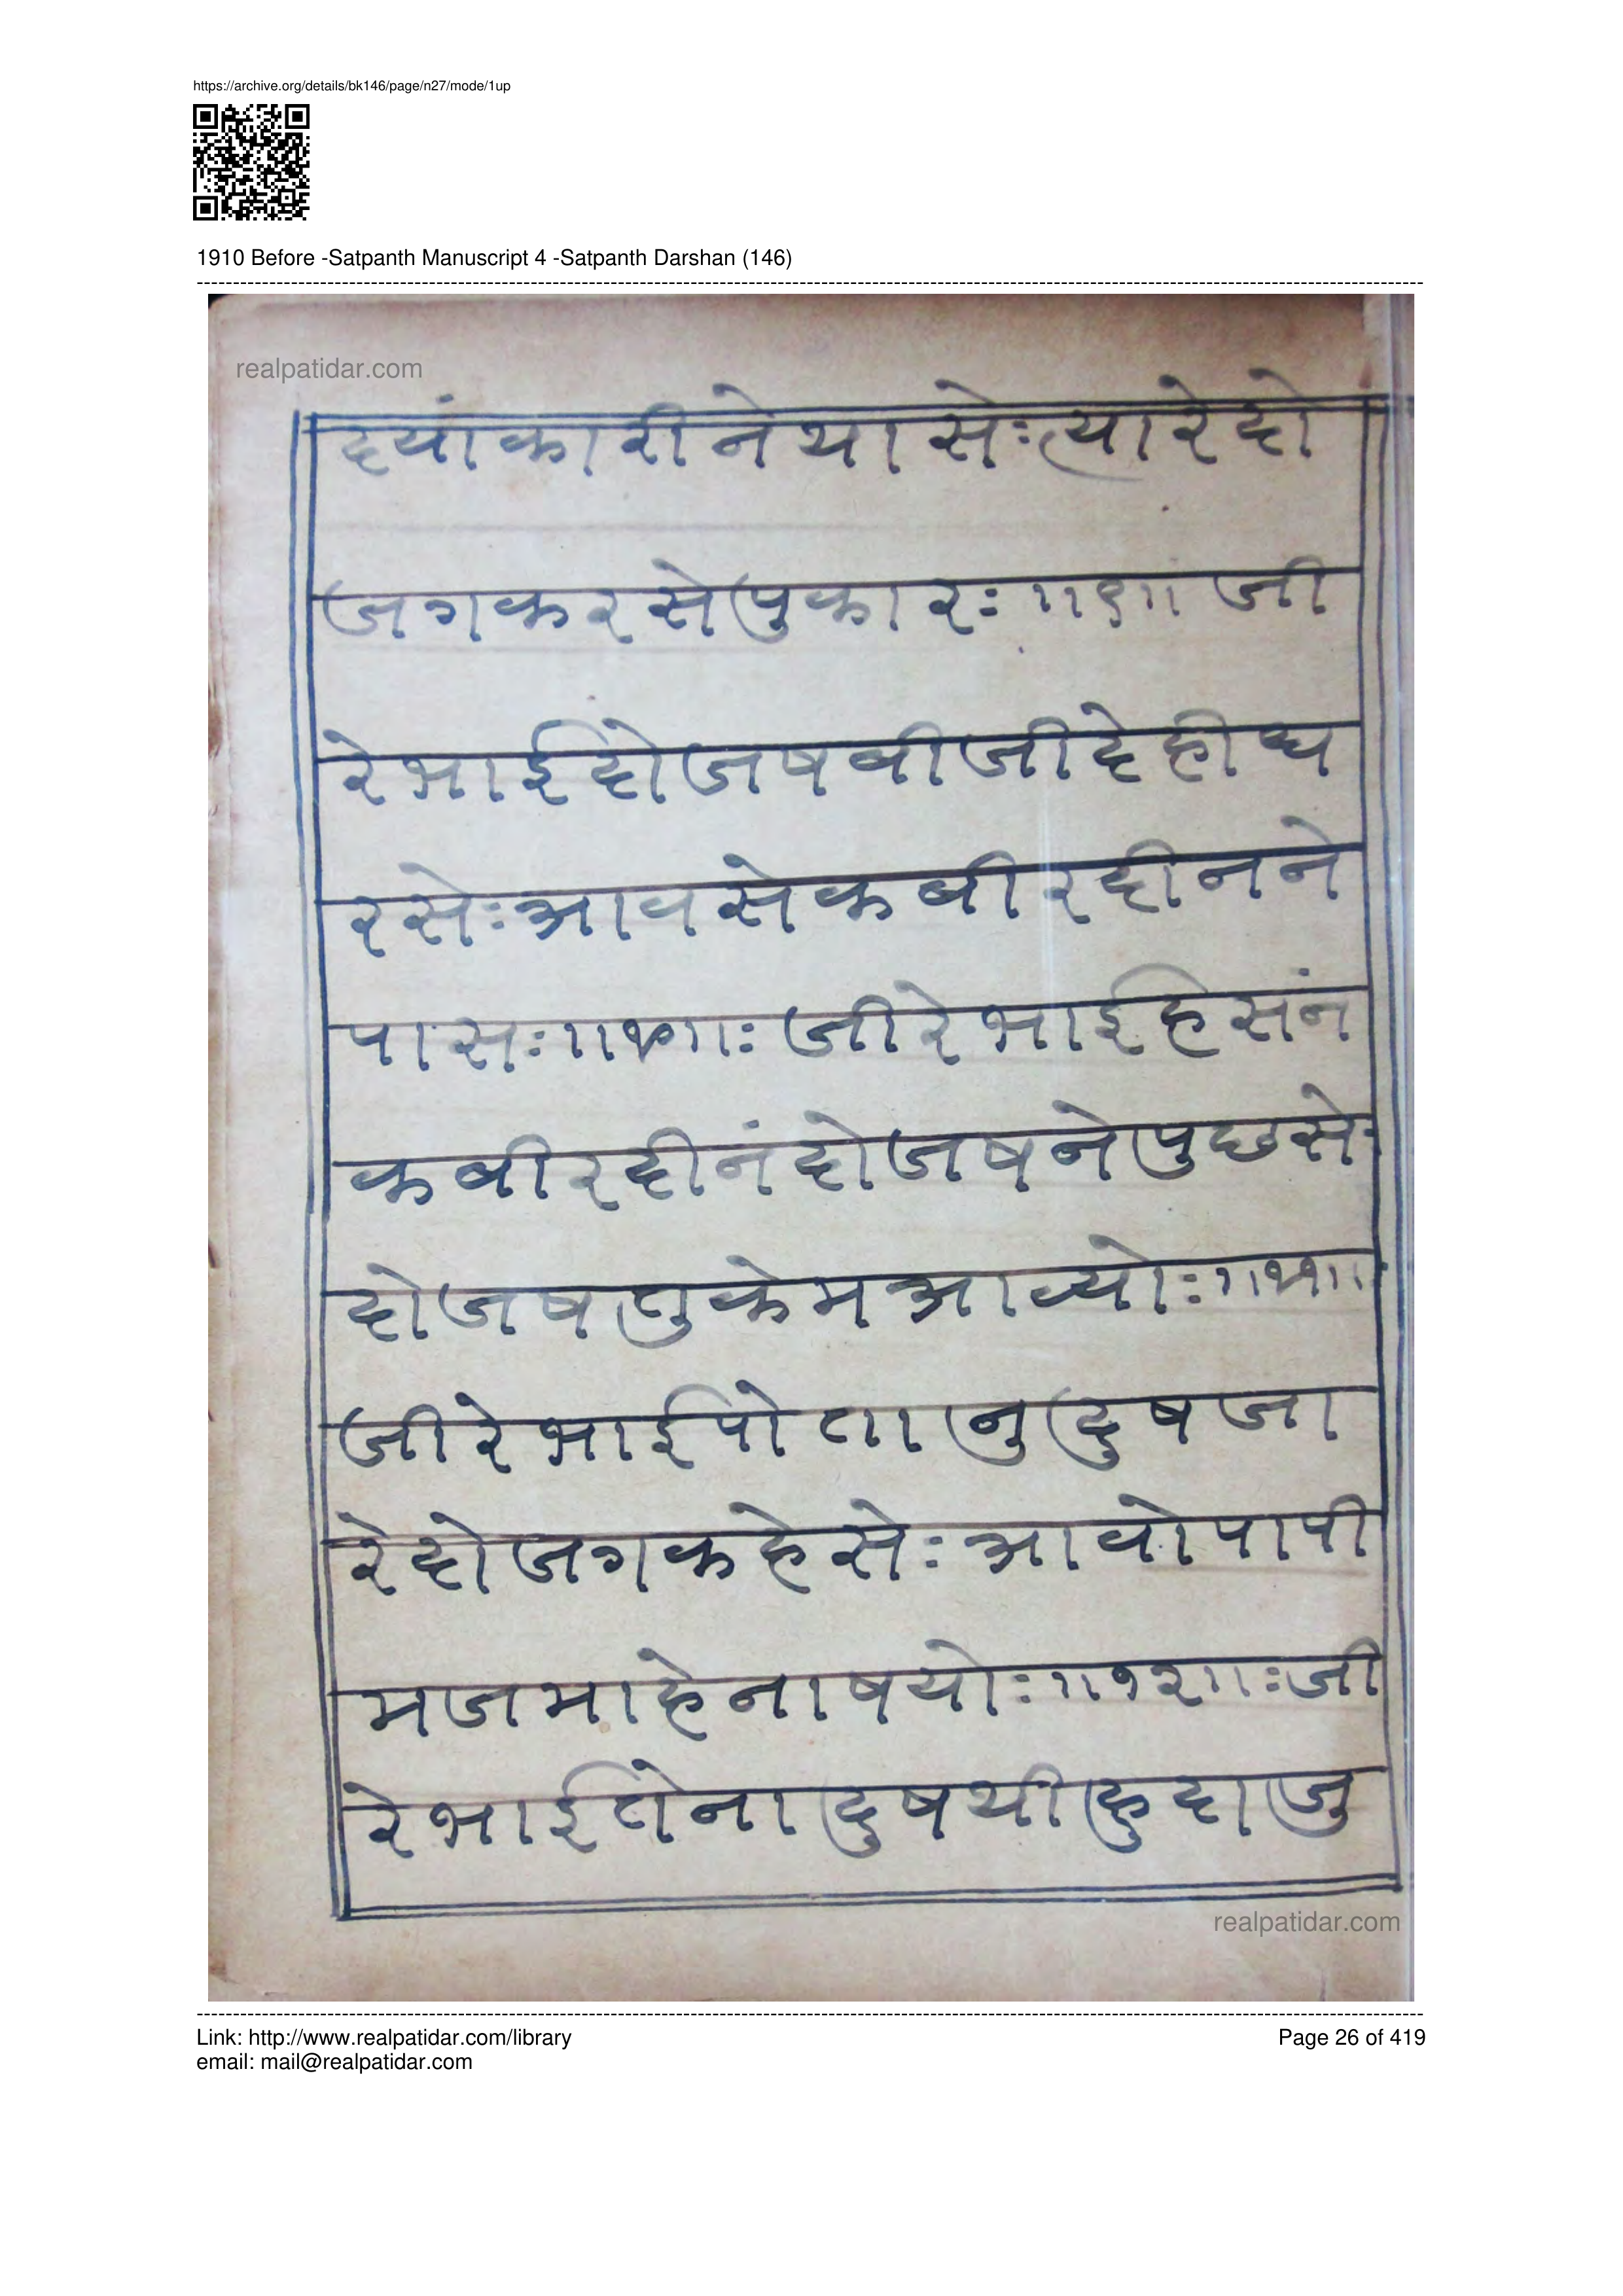 https://archive.org/details/bk146/page/n27/mode/1up
1910 Before -Satpanth Manuscript 4 -Satpanth Darshan (146)
realpatidar.com
दयांकारीनेथासेःत्यारेदो
जगकरसेपुकारः॥९॥जी
रेभाईदोजषबीजीदेहीध
रसेःआवसेकबीरदीनने
पासः॥१०॥ःजीरेभाईहसंन
कबीरदीनंदोजषनेपुछसेः
दोजषतुकेमआव्योः॥११॥
जीरेभाईपोतानुदुषजा
रेदोजगकहेसेःआवोपापी
मजमाहेनाषयोः॥१२॥ःजी
रेभाईतेनादुषथीहुदाजु
realpatidar.com
Link: http://www.realpatidar.com/library
Page 26 of 419
email: mail@realpatidar.com